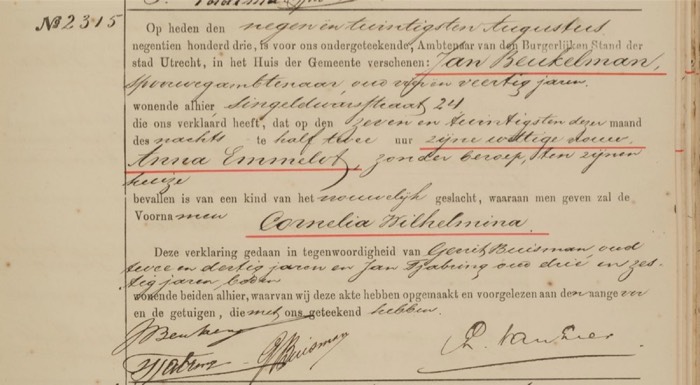 № 2315
Op heden den negen en twintigsten Augustus
negentien honderd drie, is voor ons ondergeteekende, Ambtenaar van den Burgerlijken Stand der
stad Utrecht, in het Huis der Gemeente verschenen: Jan Beukelman,
spoorwegambtenaar, oud vijf en veertig jaren
wonende alhier Singeldwarsstraat 24
die ons verklaard heeft, dat op den zeven en twintigsten dezer maand
des nachts te half twee uur zijne wettige vrouw
Anna Emmelot, zonder beroep, ten zijnen
huize
bevallen is van een kind van het vrouwelijk geslacht, waaraan men geven zal de
Voornamen Cornelia Wilhelmina
Deze verklaring gedaan in tegenwoordigheid van Gerrit Buisman, oud
twee en dertig jaren en Jan Tjabring oud drie en zes-
tig jaren boden
wonende beiden alhier, waarvan wij deze akte hebben opgemaakt en voorgelezen aan den aangever
en de getuigen, die met ons geteekend hebben.
GBuisman